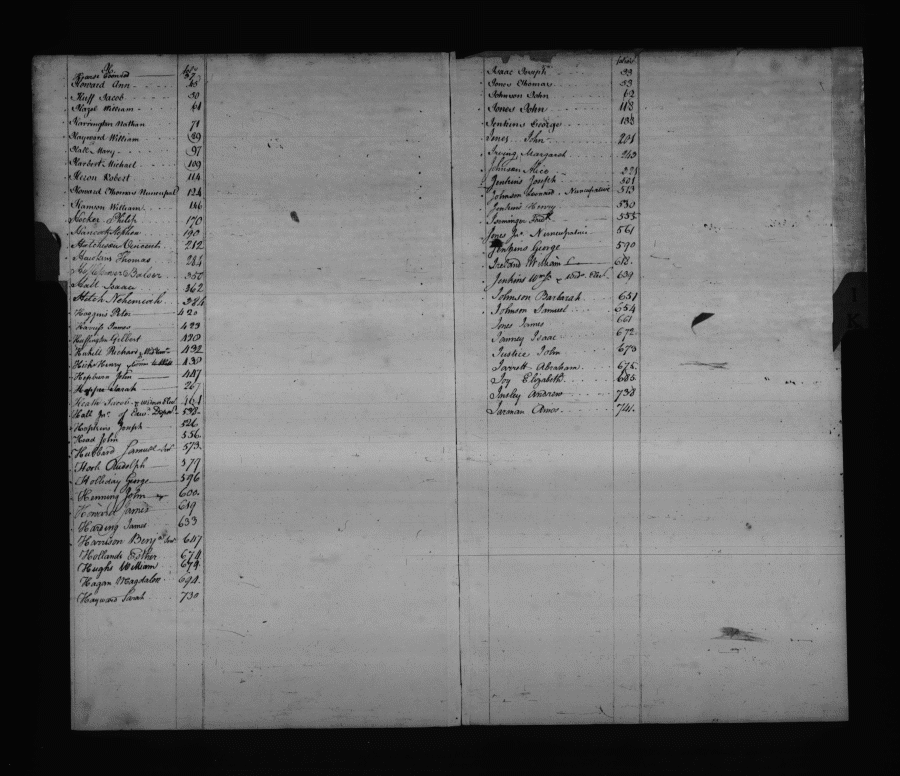 H. folio
Howard Ann 45
Huff Jacob 50
Hazel William 61
Harrington Nathan 71
Hayward William 89
Hall Mary 97
Harbert Michael 109
Heron Robert 114
Howard Thomas Nuncupat. 134
Hamson William 146
Hooker Philip 170
Hancock Stephen 190
Hutcheson Vincent 212
Hawkins Thomas 284
Balser 350
Hall Isaac 362
Hitch Nehemiah 384
Haggins Peter 420
James 423
Huffington Gilbert 428
Richard 432
Hicks Henry 438
Hepburn John 447
Sarah 267
Heath Jacob 461
Hall 538
Hopkins Joseph 526
Head John 556
Hubbard Samuel 573
Hook Rudolph 579
Holliday George 596
Henning John 600
Howard James 619
Harding James 633
Harrison Benj. 647
Hollands Esther 674
Hughs William 679
Hagan Magdalen 694
Hayward Sarah 730
folio
Isaac Joseph 33
Jones Thomas 53
Johnson John 62
Jones John 118
Jenkins George 133
Jones John 201
Irving Margaret 243
Johnson Alice 321
Jenkins Joseph 501
Johnson Leonard Nuncupative 513
Jenkins Henry 530
Isminger 555
Jones Jno. Nuncupative 561
Jenkins George 590
Ireland William 618
Jenkins Wm. 639
Johnson Barbarah 651
Johnson Samuel 654
Jones James 661
Janney Isaac 672
Justice John 673
Jarrett Abraham 675
Joy Elizabeth 685
Insley Andrew 738
Jarman Amos 741
I
K